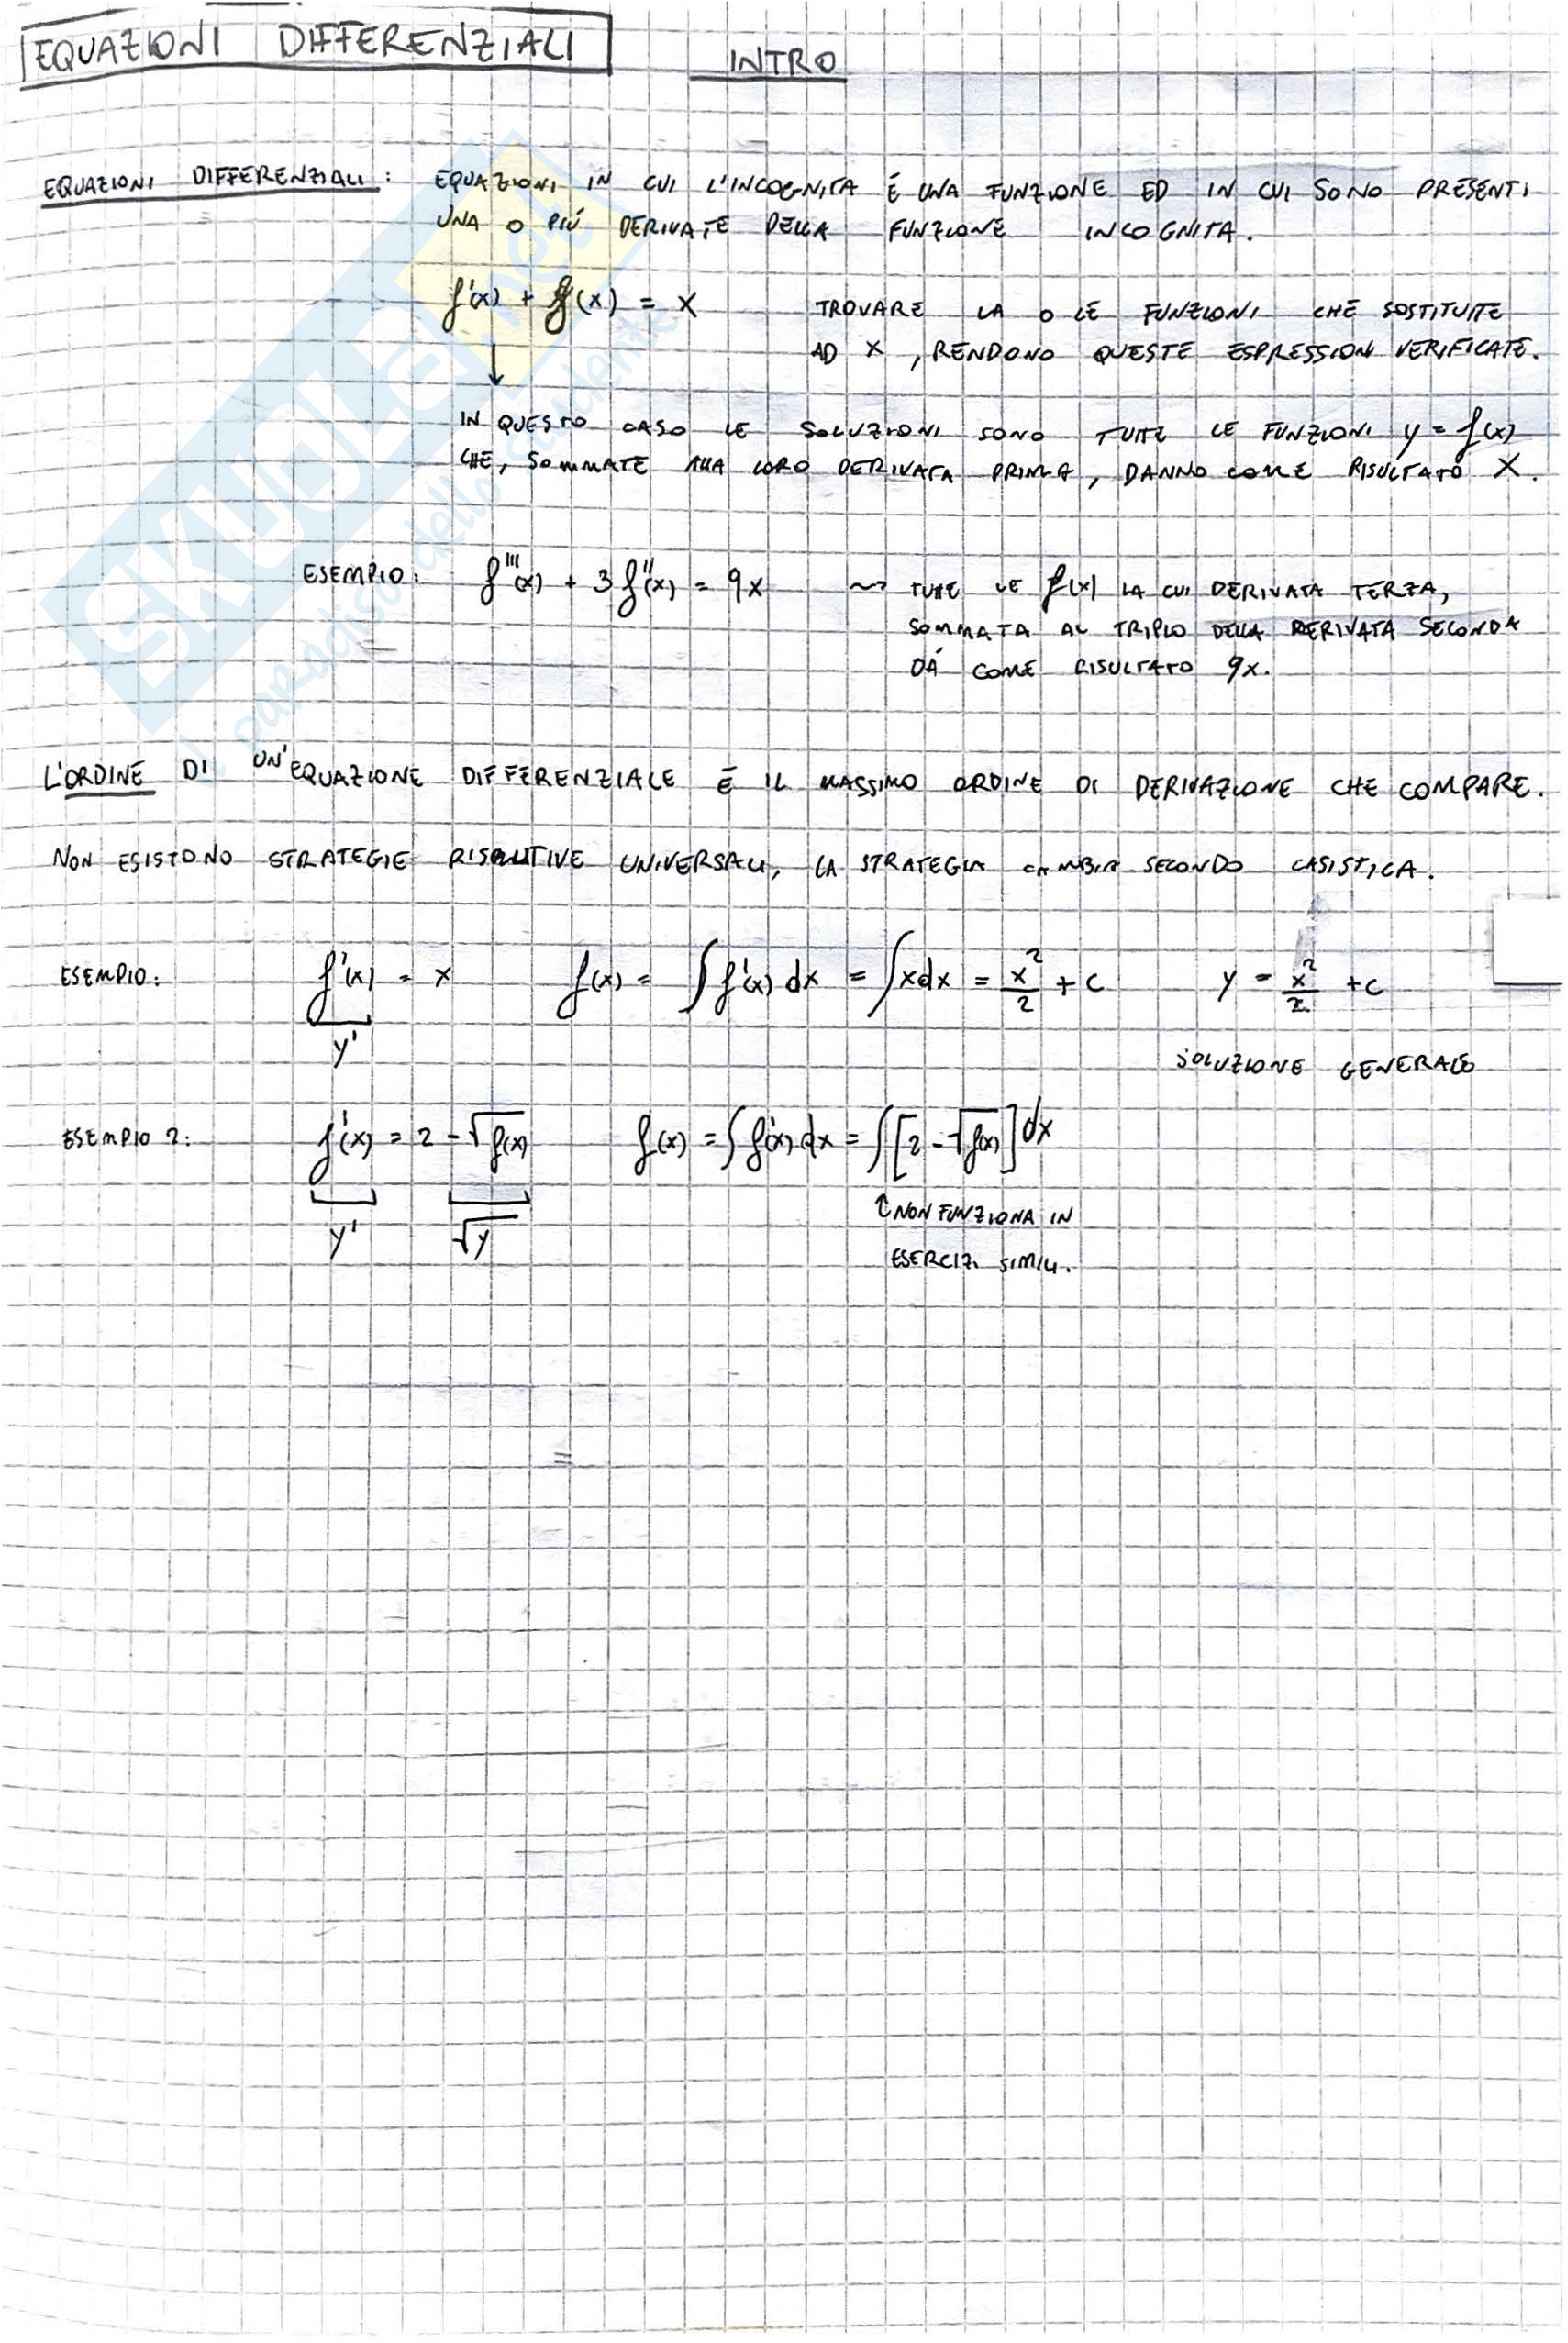 EQUAZIONI DIFFERENZIALI INTRO
EQUAZIONI DIFFERENZIALI: EQUAZIONI IN CUI L'INCOGNITA É UNA FUNZIONE ED IN CUI SONO PRESENTI
UNA O PIÚ DERIVATE DELLA FUNZIONE INCOGNITA.
f'(x) + f(x) = x TROVARE LA O LE FUNZIONI CHE SOSTITUITE
AD X, RENDONO QUESTE ESPRESSIONI VERIFICATE.
↓
IN QUESTO CASO LE SOLUZIONI SONO TUTTE LE FUNZIONI y = f(x)
CHE, SOMMATE ALLA LORO DERIVATA PRIMA, DANNO COME RISULTATO X.
ESEMPIO: f'''(x) + 3f''(x) = 9x ⤳ TUTTE LE f(x) LA CUI DERIVATA TERZA,
SOMMATA AL TRIPLO DELLA DERIVATA SECONDA
DÁ COME RISULTATO 9x.
L'ORDINE DI UN'EQUAZIONE DIFFERENZIALE É IL MASSIMO ORDINE DI DERIVAZIONE CHE COMPARE.
NON ESISTONO STRATEGIE RISOLUTIVE UNIVERSALI, LA STRATEGIA CAMBIA SECONDO CASISTICA.
ESEMPIO: f'(x) = x f(x) = ∫f'(x) dx = ∫xdx = x²/2 + c y = x²/2 + c
y'
SOLUZIONE GENERALE
ESEMPIO 2: f'(x) = 2 - √f(x) f(x) = ∫f'(x) dx = ∫[2 - √f(x)] dx
y' √y ↑ NON FUNZIONA IN
ESERCIZI SIMILI.
SKUOLA.net